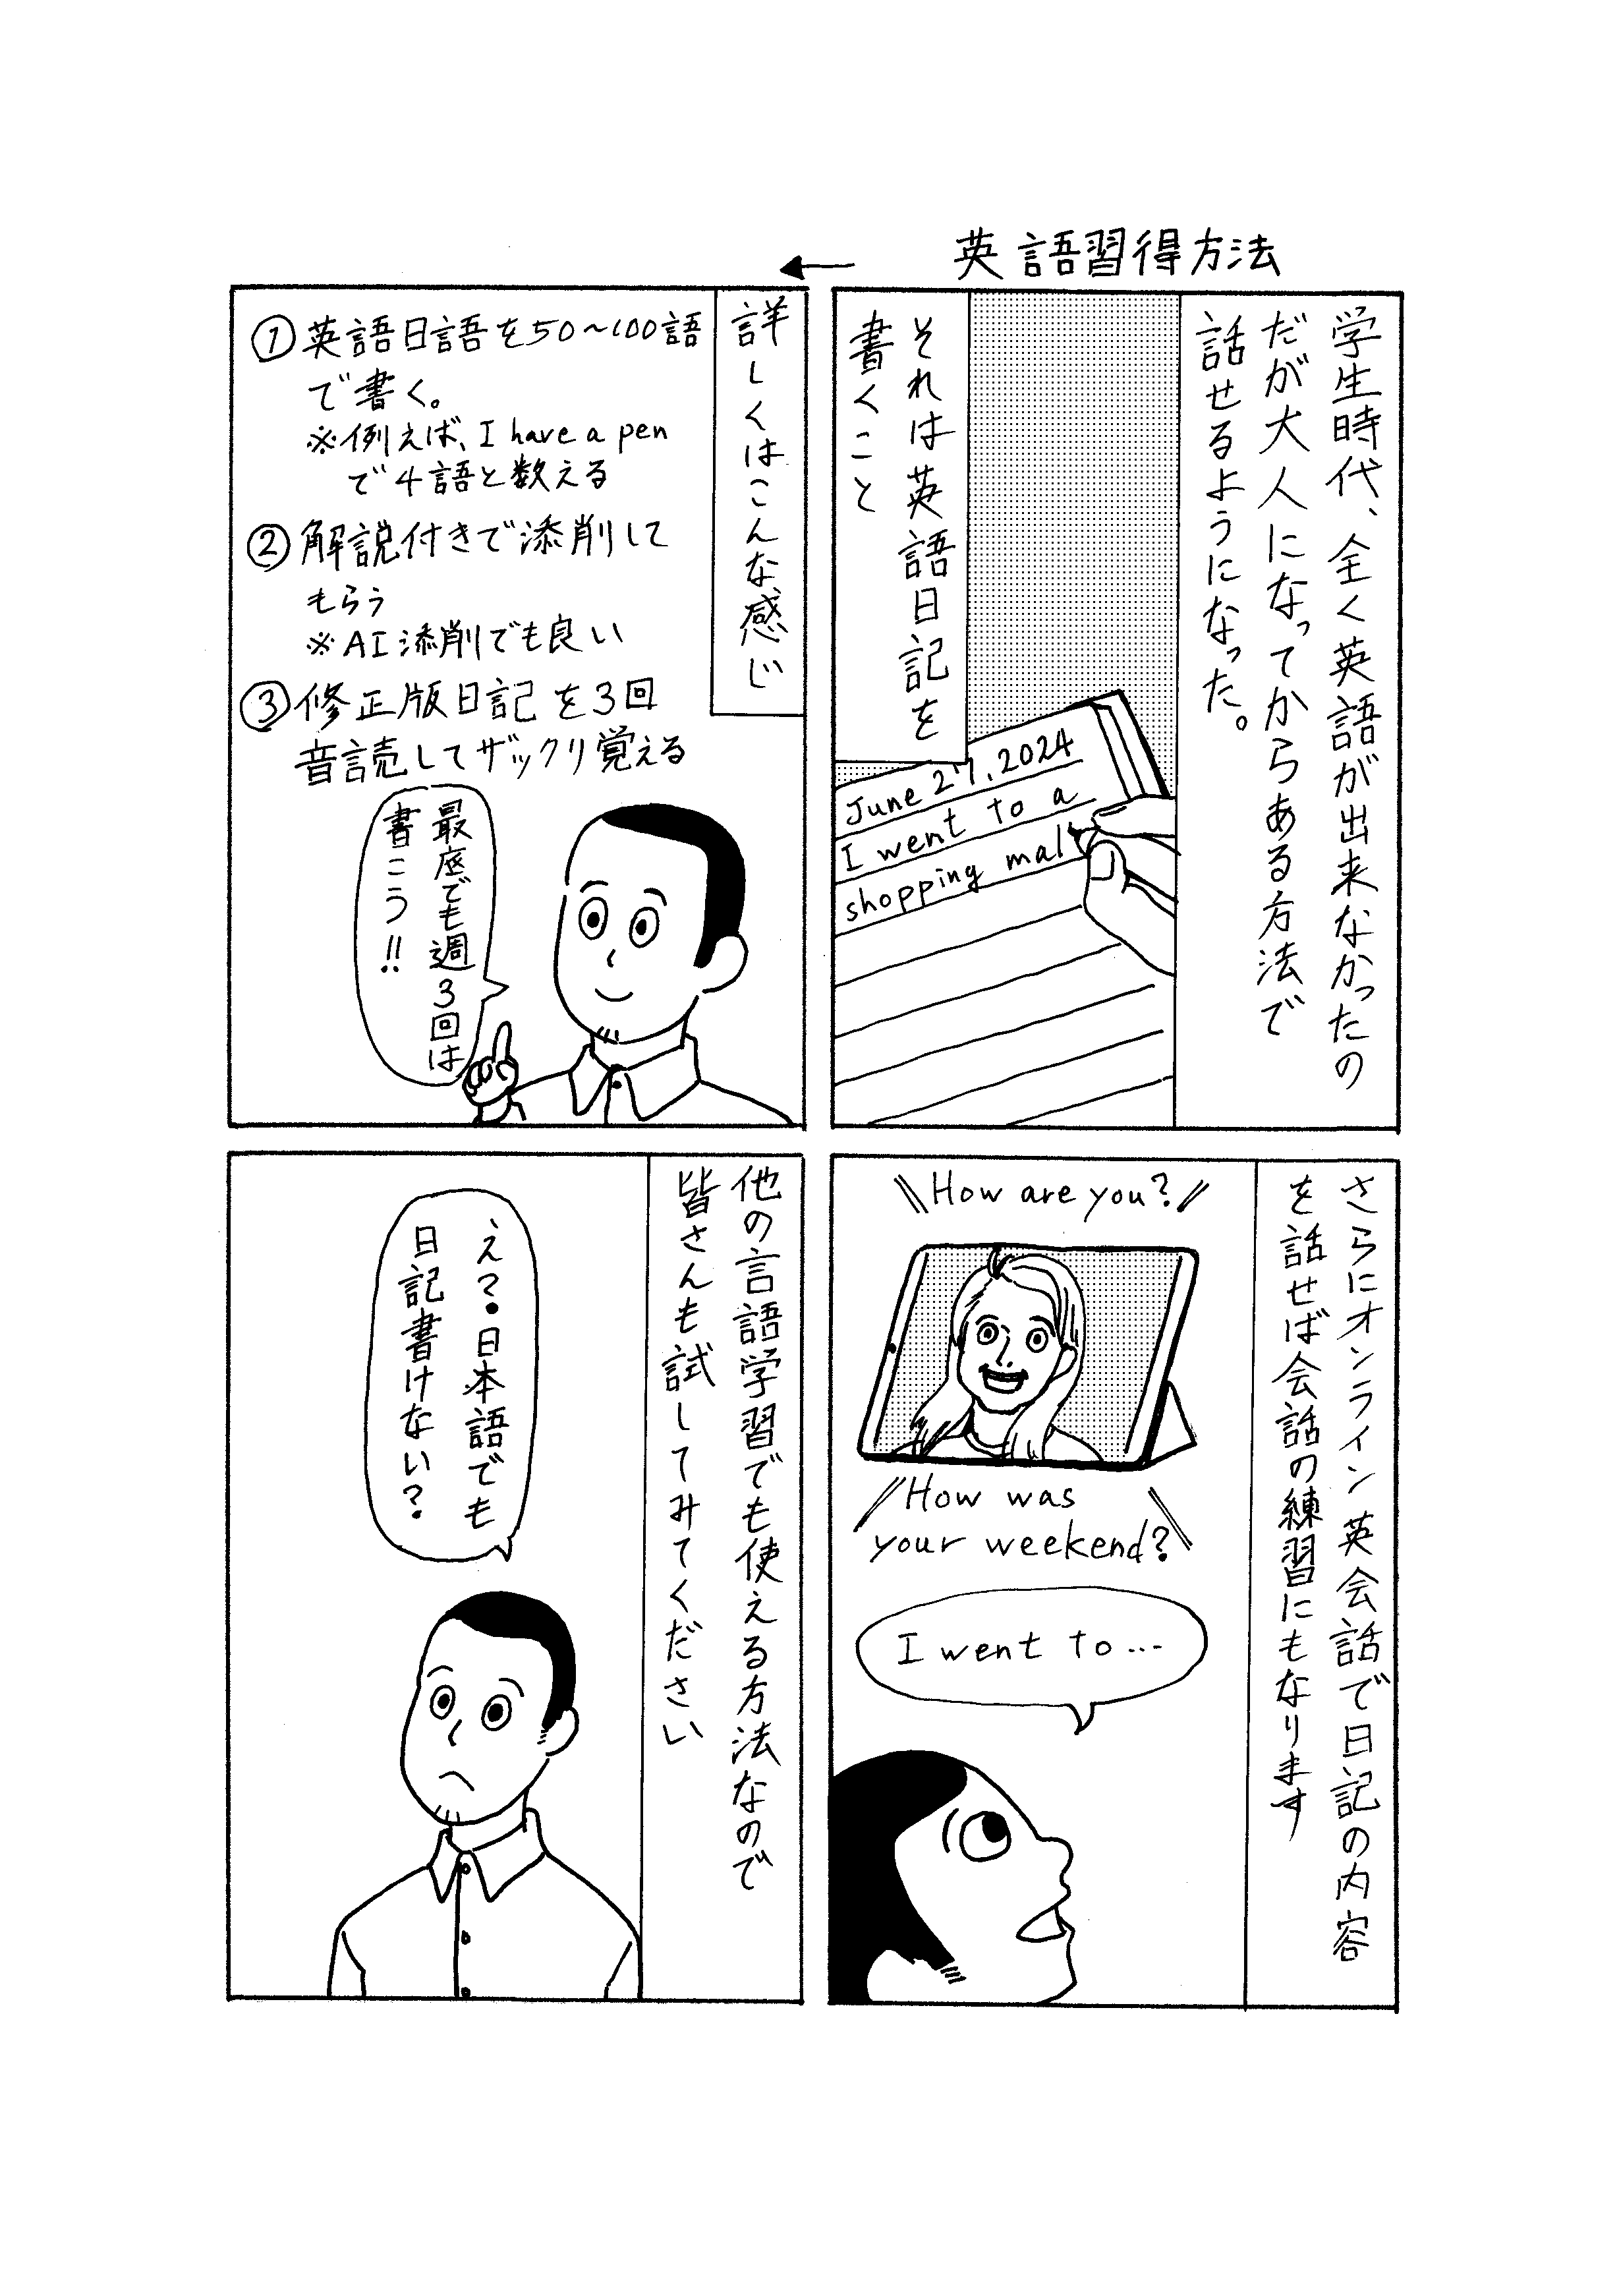 英語習得方法
学生時代、全く英語が出来なかったの
だが大人になってからある方法で
話せるようになった。
それは英語日記を
書くこと
June 27, 2024
I went to a
shopping mal
詳しくはこんな感じ
①英語日語を50〜100語
で書く。
※例えば、I have a pen
で4語と数える
②解説付きで添削して
もらう
※AI添削でも良い
③修正版日記を3回
音読してザックリ覚える
最底でも週3回は
書こう!!
さらにオンライン英会話で日記の内容
を話せば会話の練習にもなります
How are you?
How was
your weekend?
I went to...
他の言語学習でも使える方法なので
皆さんも試してみてください
え?日本語でも
日記書けない?